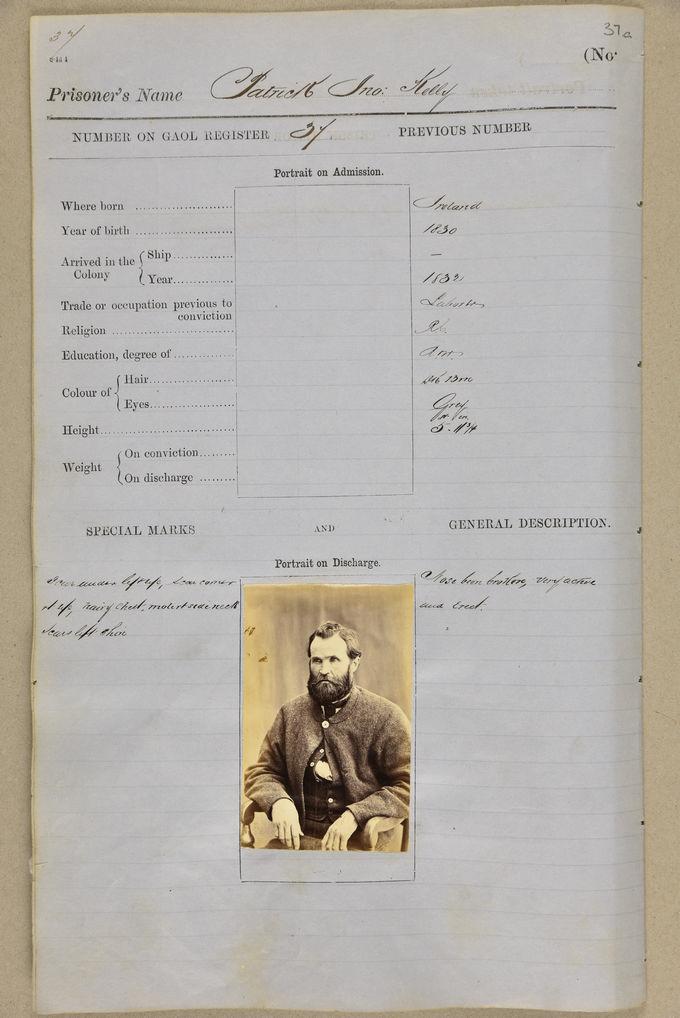 37
37a
(No.
Prisoner's Name Patrick Jno: Kelly
NUMBER ON GAOL REGISTER 37 PREVIOUS NUMBER
Portrait on Admission.
Where born Ireland
Year of birth 1830
Arrived in the Colony { Ship —
Year 1832
Trade or occupation previous to conviction Laborer
Religion R.C.
Education, degree of
Colour of { Hair Brn
Eyes Grey
Height 5 - 11 3/4
Weight { On conviction
On discharge
SPECIAL MARKS AND GENERAL DESCRIPTION.
Portrait on Discharge.
Scar under left lip, scar corner
rt lip, hairy chest, mole rt side neck
scars left shin
Nose been broken, very active
and erect.